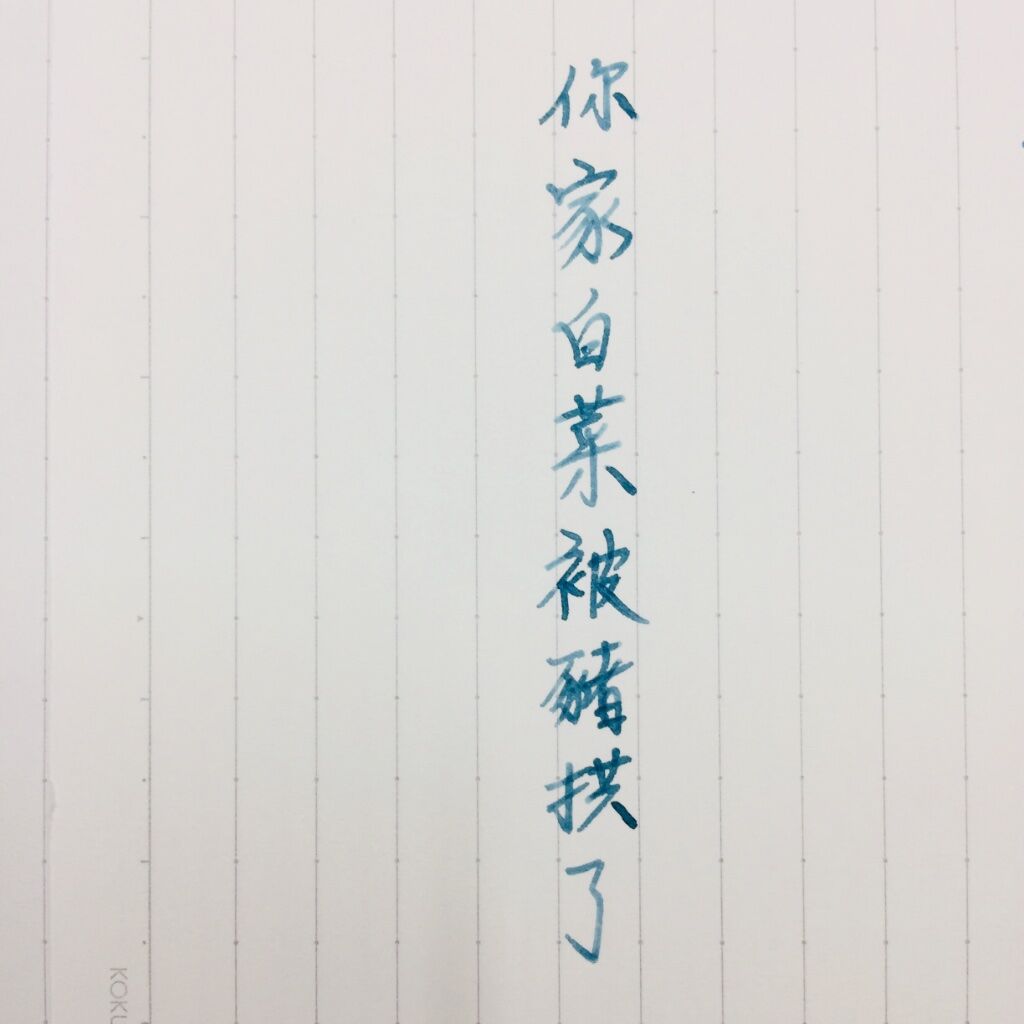 你家白菜被豬拱了
KOKU